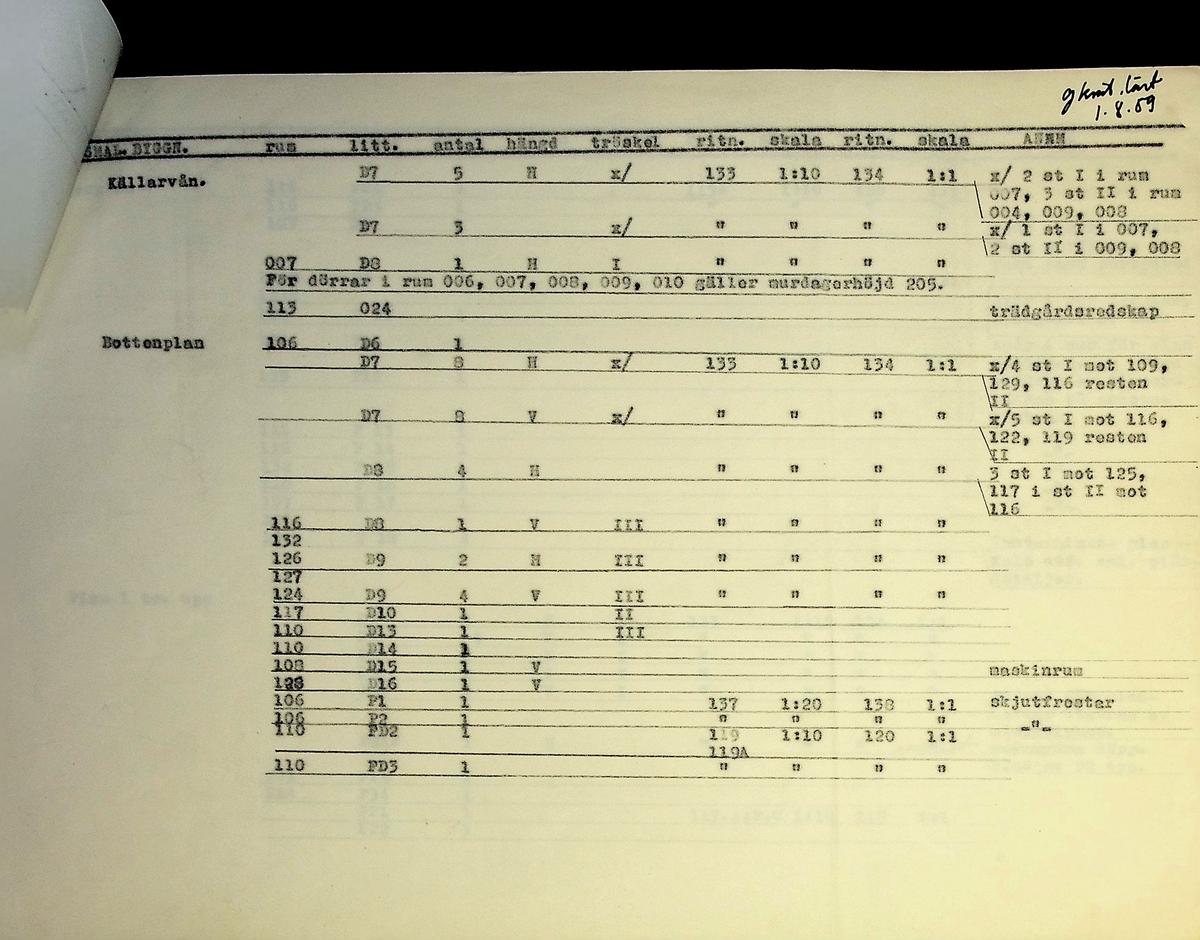 1.8.59
SMAL. BYGGN. rum litt. antal hängd tröskel ritn. skala ritn. skala ANRM
Källarvån. D7 5 H x/ 133 1:10 134 1:1 x/ 2 st I i rum
007, 3 st II i rum
004, 009, 008
D7 3 x/ " " " " x/ 1 st I i 007,
2 st II i 009, 008
007 D8 1 H I " " " "
För dörrar i rum 006, 007, 008, 009, 010 gäller murdagerhöjd 205.
113 024 trädgårdsredskap
Bottenplan 106 D6 1
D7 8 H x/ 133 1:10 134 1:1 x/4 st I mot 109,
129, 116 resten
II
D7 8 V x/ " " " " x/5 st I mot 116,
122, 119 resten
II
D8 4 H " " " " 3 st I mot 125,
117 i st II mot
116
116 D8 1 V III " " " "
132
126 D9 2 H III " " " "
127
124 D9 4 V III " " " "
117 D10 1 II
110 D13 1 III
110 D14 1
108 D15 1 V maskinrum
D16 1 V
106 P1 1 137 1:20 138 1:1 skjutfrester
106 P2 1 " " " " -"-
110 PD2 1 119 1:10 120 1:1
119A
110 PD3 1 " " " "